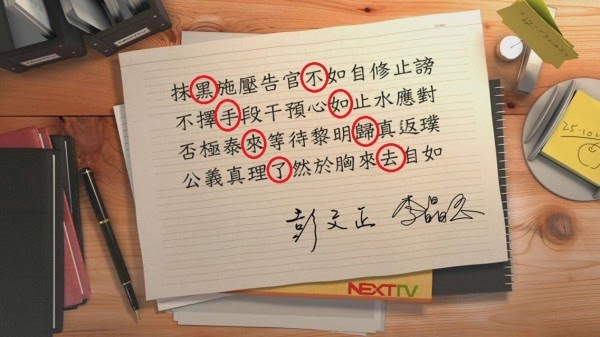 抹黑施壓告官不如自修止謗
不擇手段干預心如止水應對
否極泰來等待黎明歸真返璞
公義真理了然於胸來去自如
彭文正 李晶玉
NEXTTV